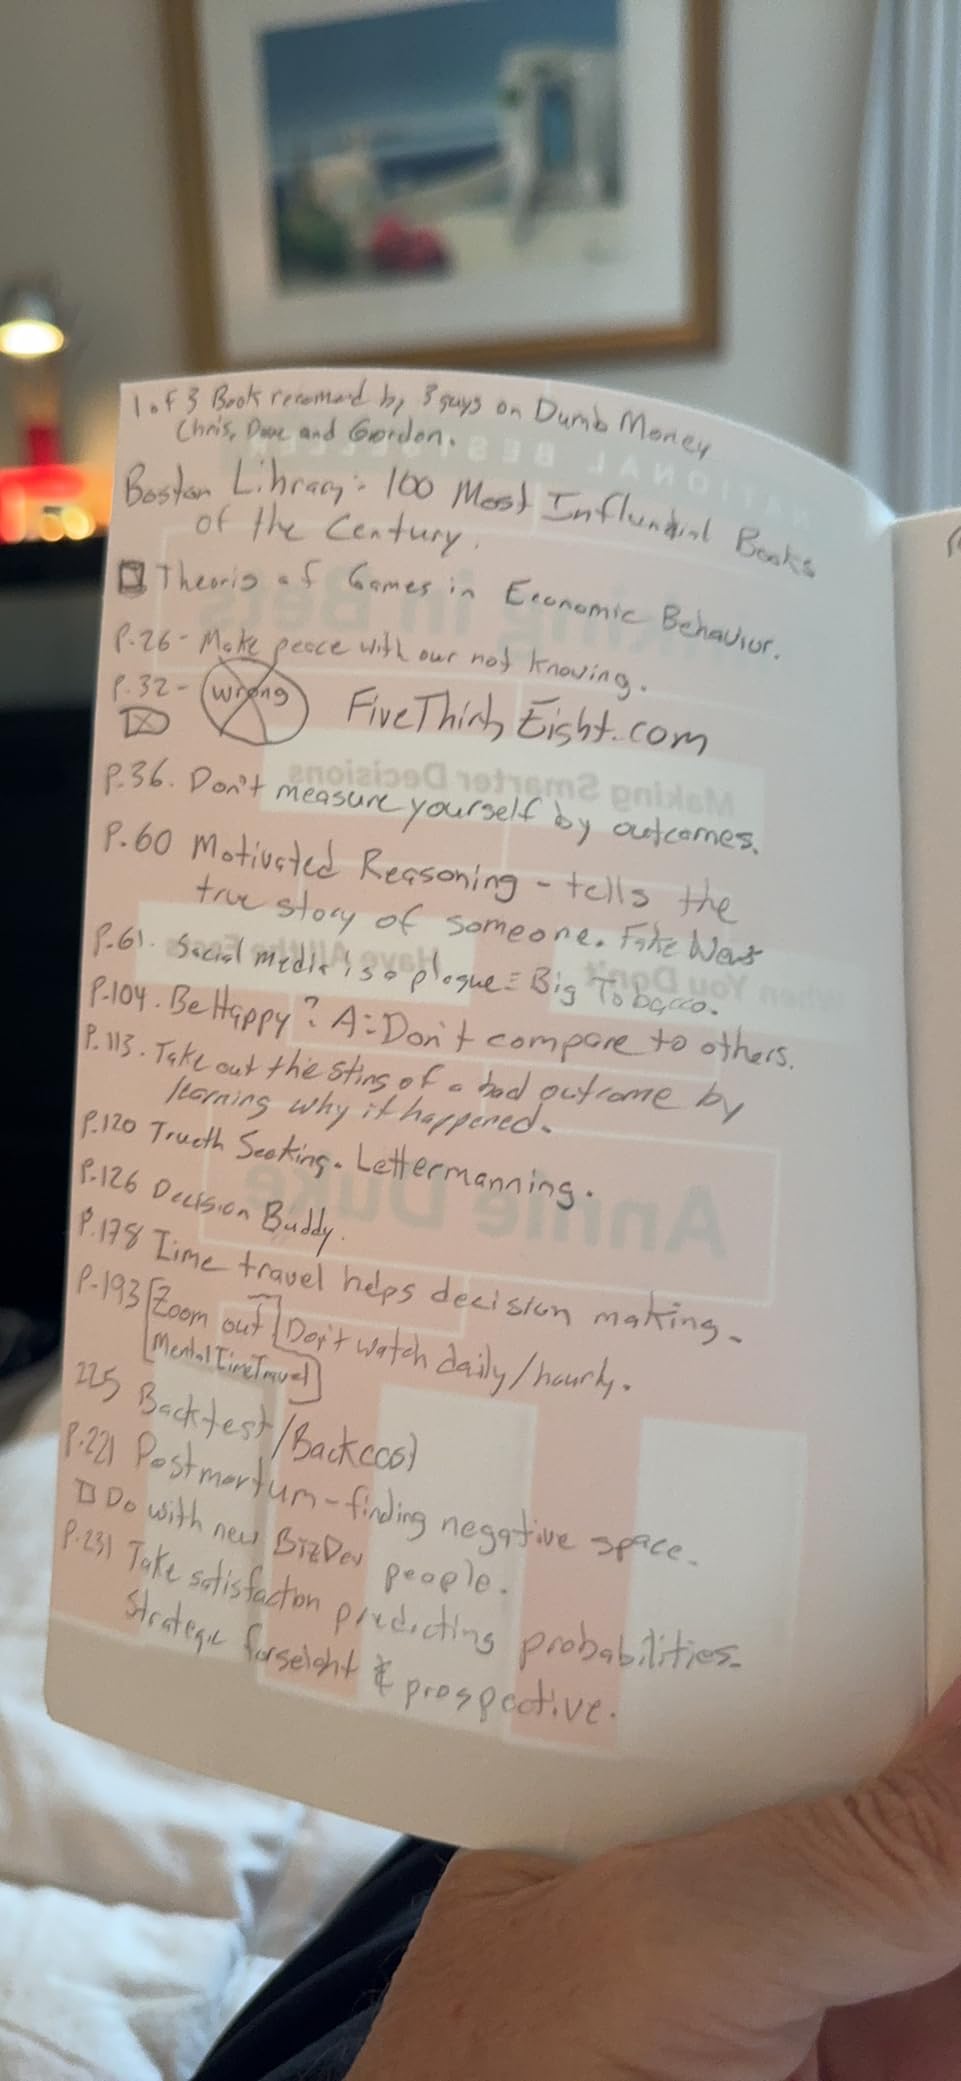 1 of 3 Book recomend by 3 guys on Dumb Money
Chris, Dave and Gordon.
Boston Library: 100 Most Influential Books
of the Century.
Theoris of Games in Economic Behavior.
P.26- Make peace with our not knowing.
P.32- wrong FiveThirtyEight.com
P.36. Don't measure yourself by outcomes.
P.60 Motivated Reasoning - tells the
true story of someone. Fake News
P.61. Social media is a plague = Big Tobacco.
P-104. Be Happy? A: Don't compare to others.
P.113. Take out the sting of a bad outcome by
learning why it happened.
P.120 Trueth Seeking. Lettermanning.
P.126 Decision Buddy.
P.178 Time travel helps decision making.
P-193 Zoom out Don't watch daily/hourly.
Mental Time Travel
225 Backtest/Backcast
P.221 Postmortum-finding negative space.
Do with new BizDev people.
P.231 Take satisfaction predicting probabilities.
Strategic forseight & prospective.
NATIONAL BESTSELLER
Thinking in Bets
Making Smarter Decisions
When You Don't Have All the Facts
Annie Duke